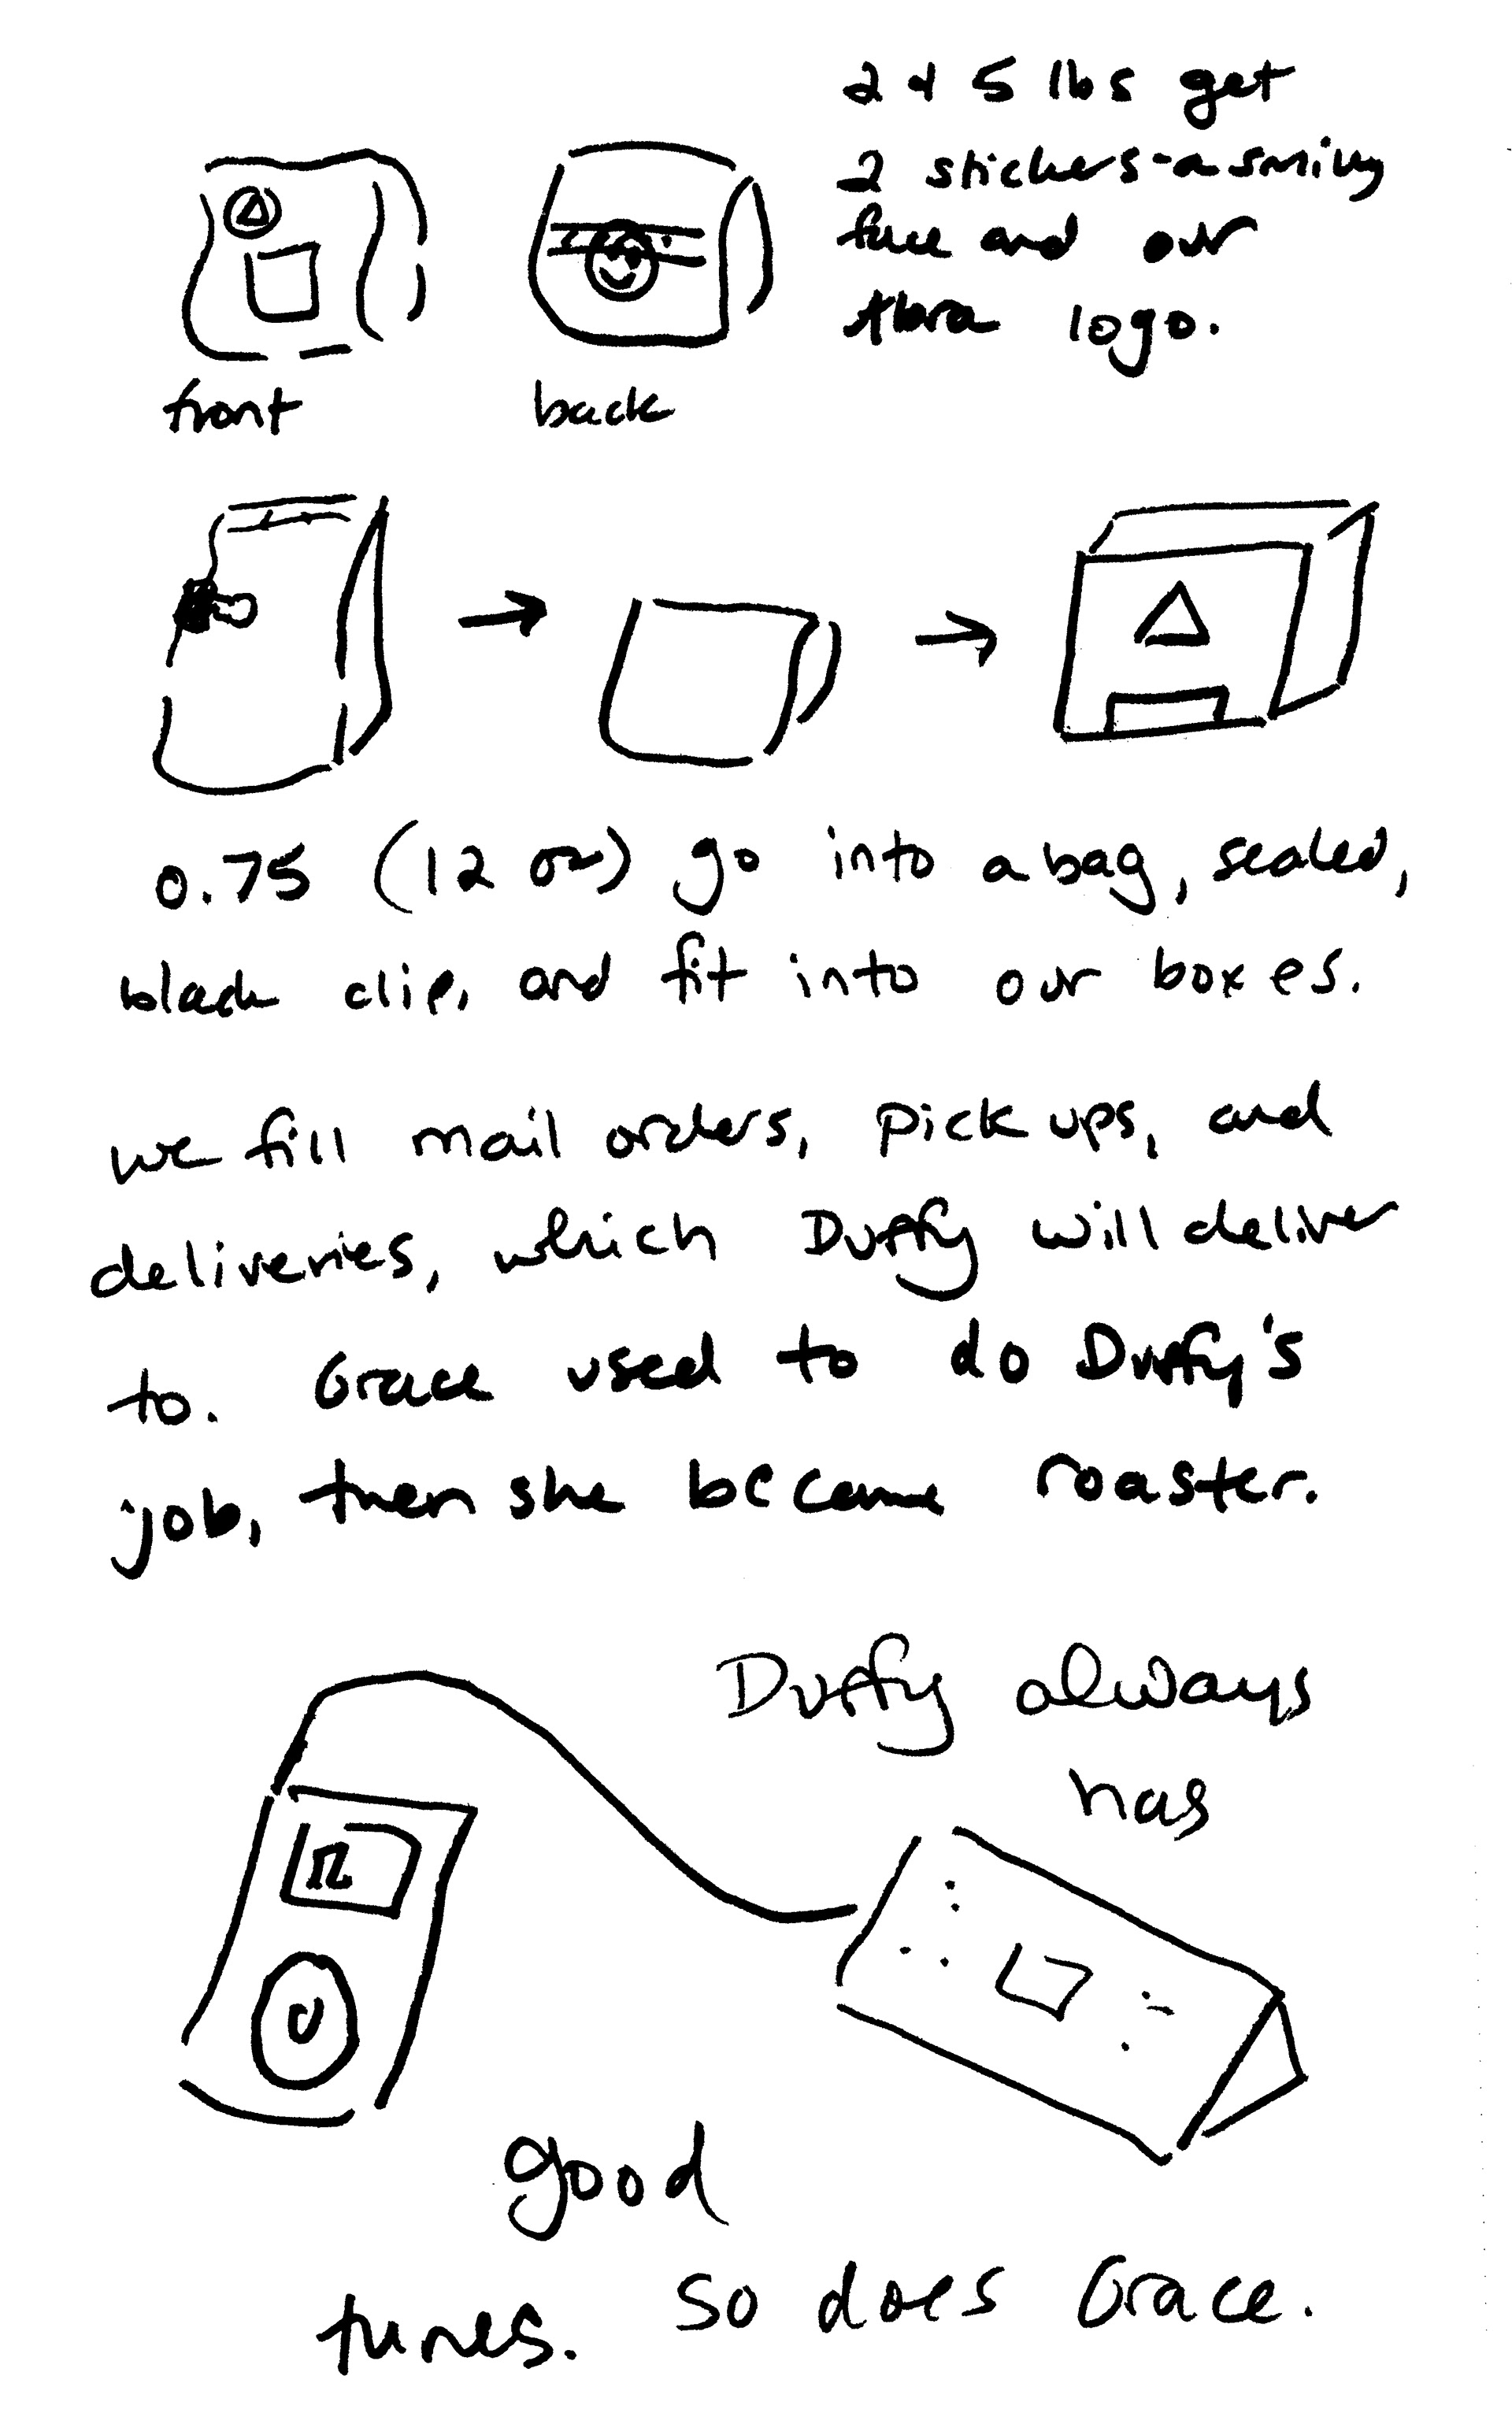 2 & 5 lbs get
2 stickers - a smiley
face and our
logo.
front
back
0.75 (12 oz) go into a bag, sealed,
black clip, and fit into our boxes.
we fill mail orders, pick ups, and
deliveries, which Duffy will deliver
to. Grace used to do Duffy's
job, then she became roaster.
Duffy always
has
good
tunes. So does Grace.